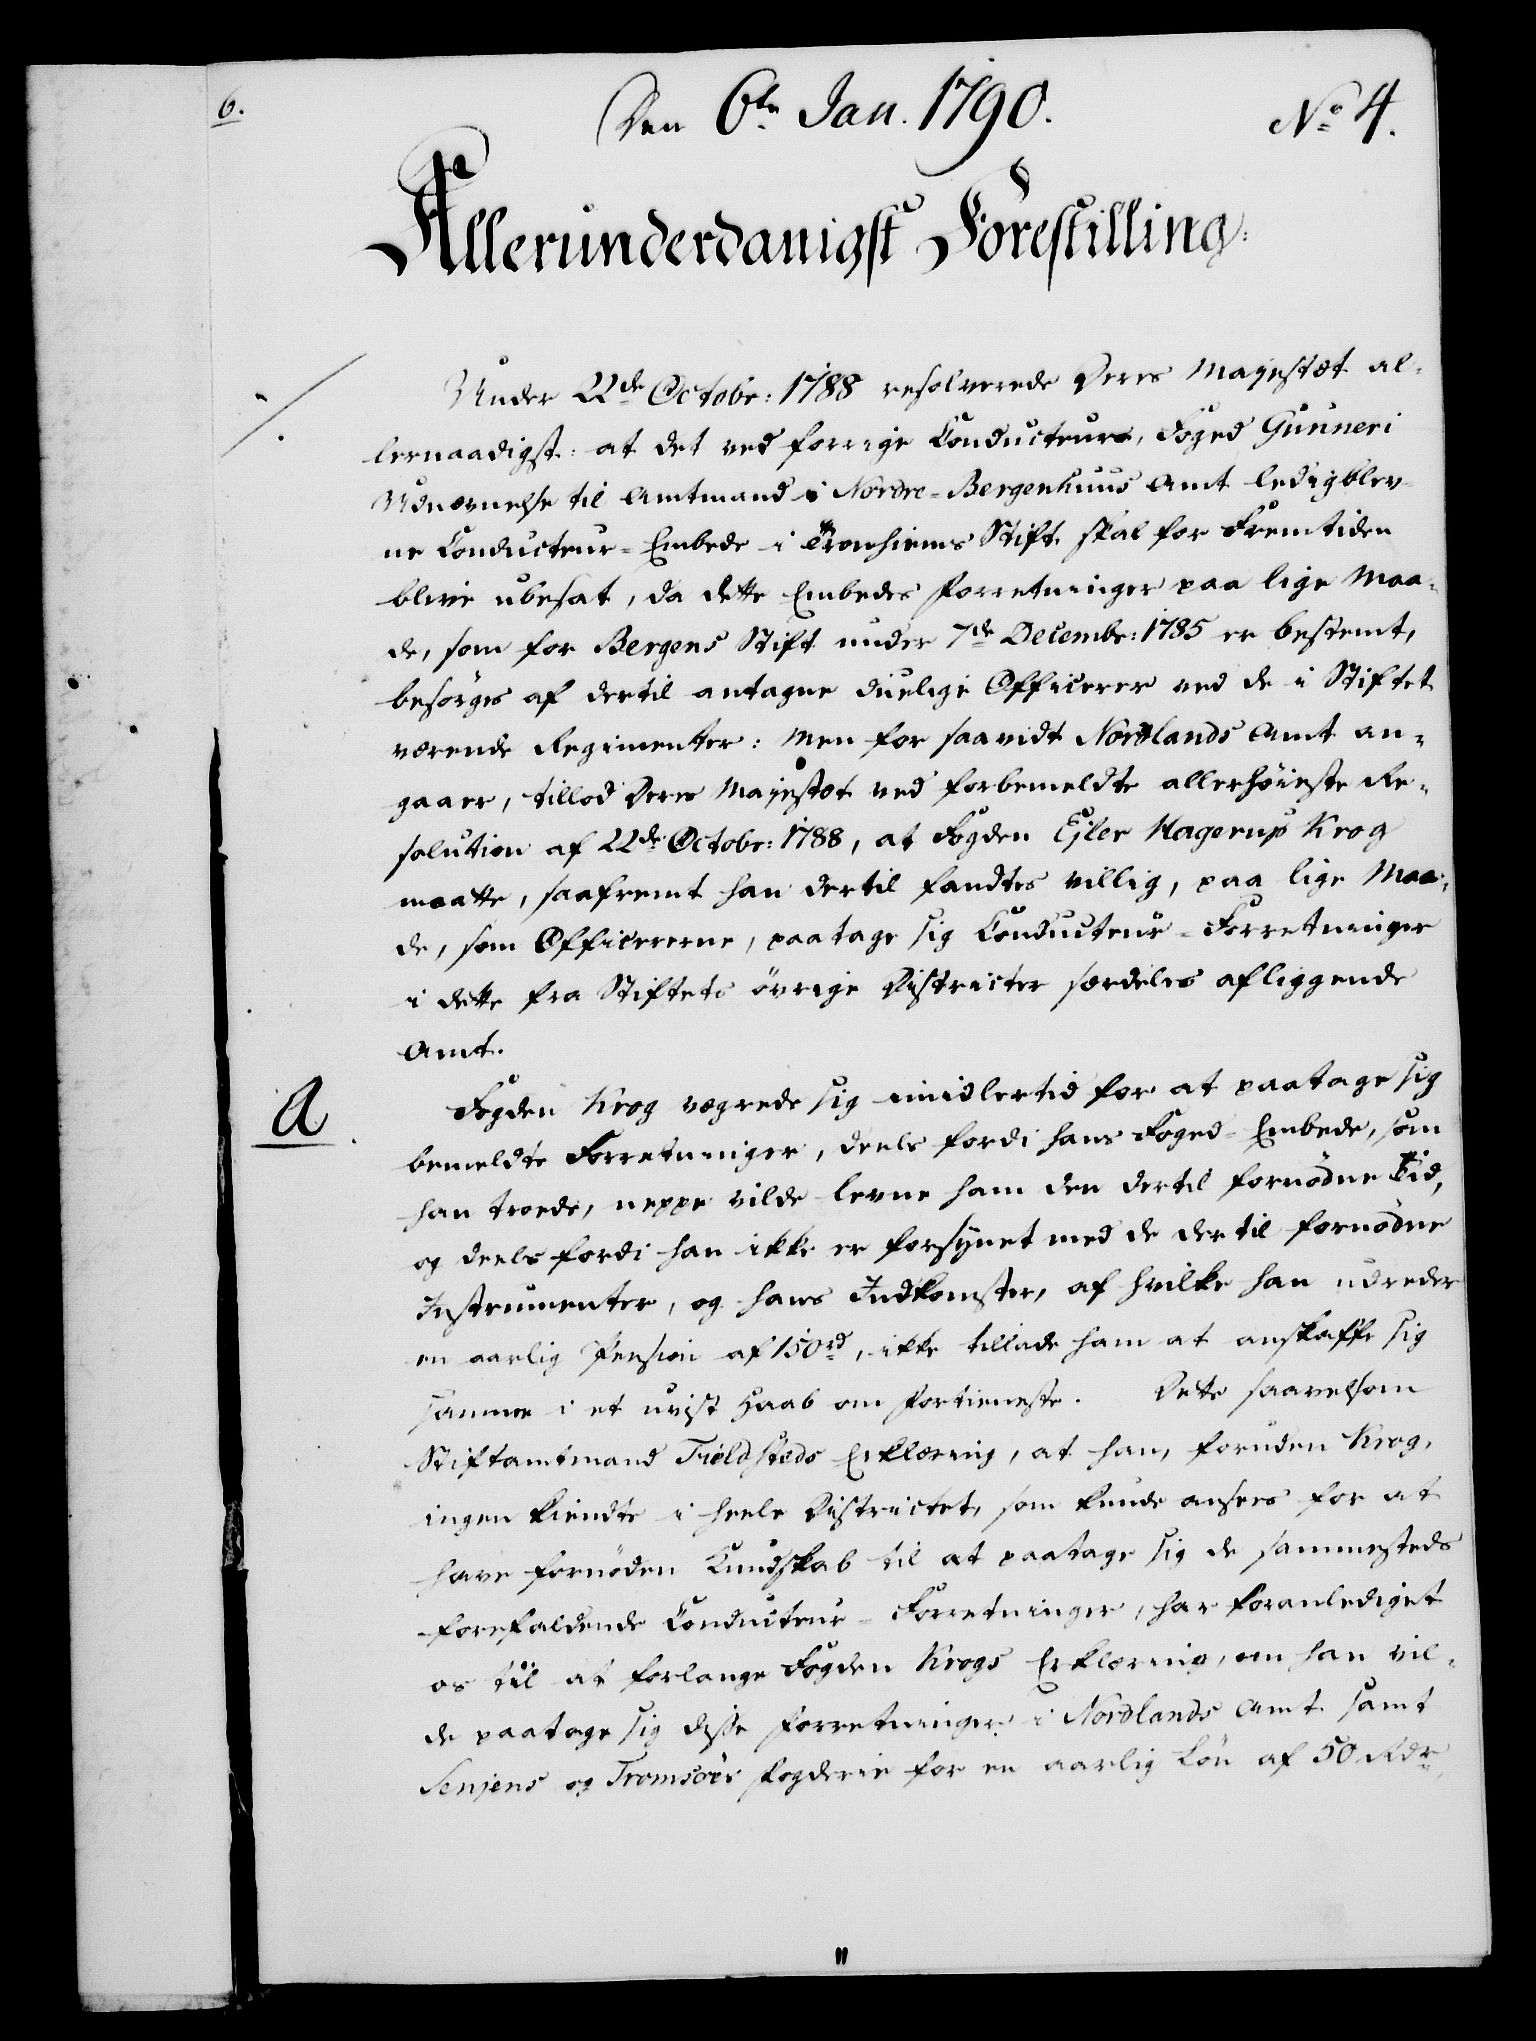 6.
Den 6te Jan. 1790.
No 4.
Allerunderdanigst Forestilling:
Under 22de Octobr: 1788 resolverede Deres Majestæt al-
lernaadigst: at det ved forrige Conducteurs, Foged Gunneri
Udnævnelse til Amtmand i Nordre-Bergenhuus Amt ledigblev-
ne Conducteur-Embede i Tronhiems Stift skal for Fremtiden
blive ubesat, da dette Embedes Forretninger paa lige Maa-
de, som for Bergens Stift under 7de Decembr: 1785 er bestemt,
besørges af dertil antagne duelige Officerer ved de i Stiftet
værende Regimenter: Men for saavidt Nordlands Amt an-
gaaer, tillod Deres Majestæt ved forbemeldte allerhøieste Re-
solution af 22de Octobr: 1788, at Fogden Ejler Hagerup Krog
maatte, saafremt han dertil fandtes villig, paa lige Maa-
de, som Officererne, paatage sig Conducteur-Forretninger
i dette fra Stiftets øvrige Districter særdeles afliggende
Amt.
A
Fogden Krog vægrede sig imidlertid for at paatage sig
bemeldte Forretninger, deels fordi hans Foged-Embede, som
han troede, neppe vilde levne ham den dertil fornødne Tid,
og deels fordi han ikke er forsynet med de dertil fornødne
Instrumenter, og hans Indkomster, af hvilke han udreder
en aarlig Pension af 150rd, ikke tillade ham at anskaffe sig
samme i et uvist Haab om Fortieneste. Dette saavelsom
Stiftamtmand Fieldsteds Erklæring, at han, foruden Krog,
ingen kiendte i heele Districtet, som kunde ansees for at
have fornøden Kundskab til at paatage sig de sammesteds
forefaldende Conducteur-Forretninger, har foranlediget
os til at forlange Fogden Krogs Erklæring, om han vil-
de paatage sig disse Forretninger i Nordlands Amt samt
Senjens og Tromsöes Fogderie for en aarlig Løn af 50 Rdr